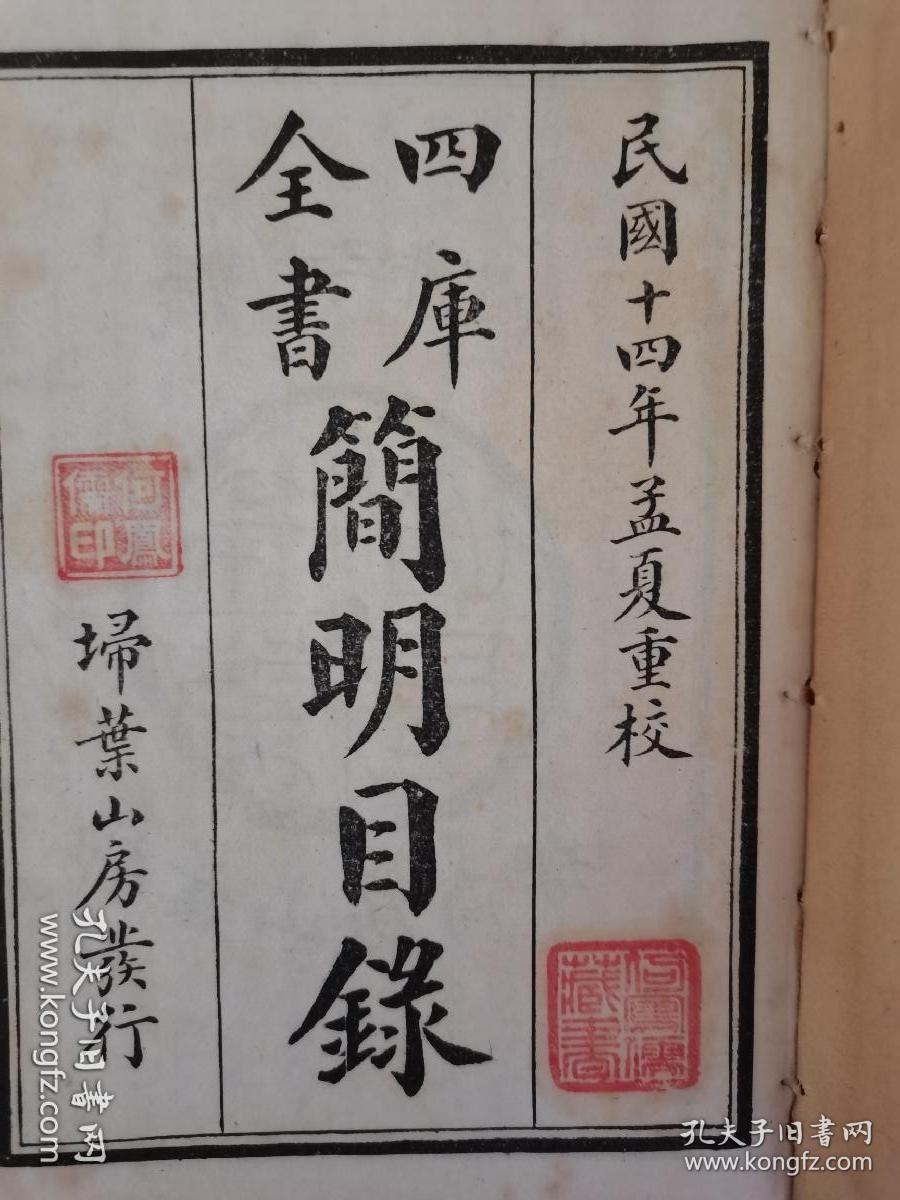 民國十四年孟夏重校
四庫
全書
簡明目錄
埽葉山房發行
孔夫子旧书网
www.kongfz.com
孔夫子旧书网
www.kongfz.com